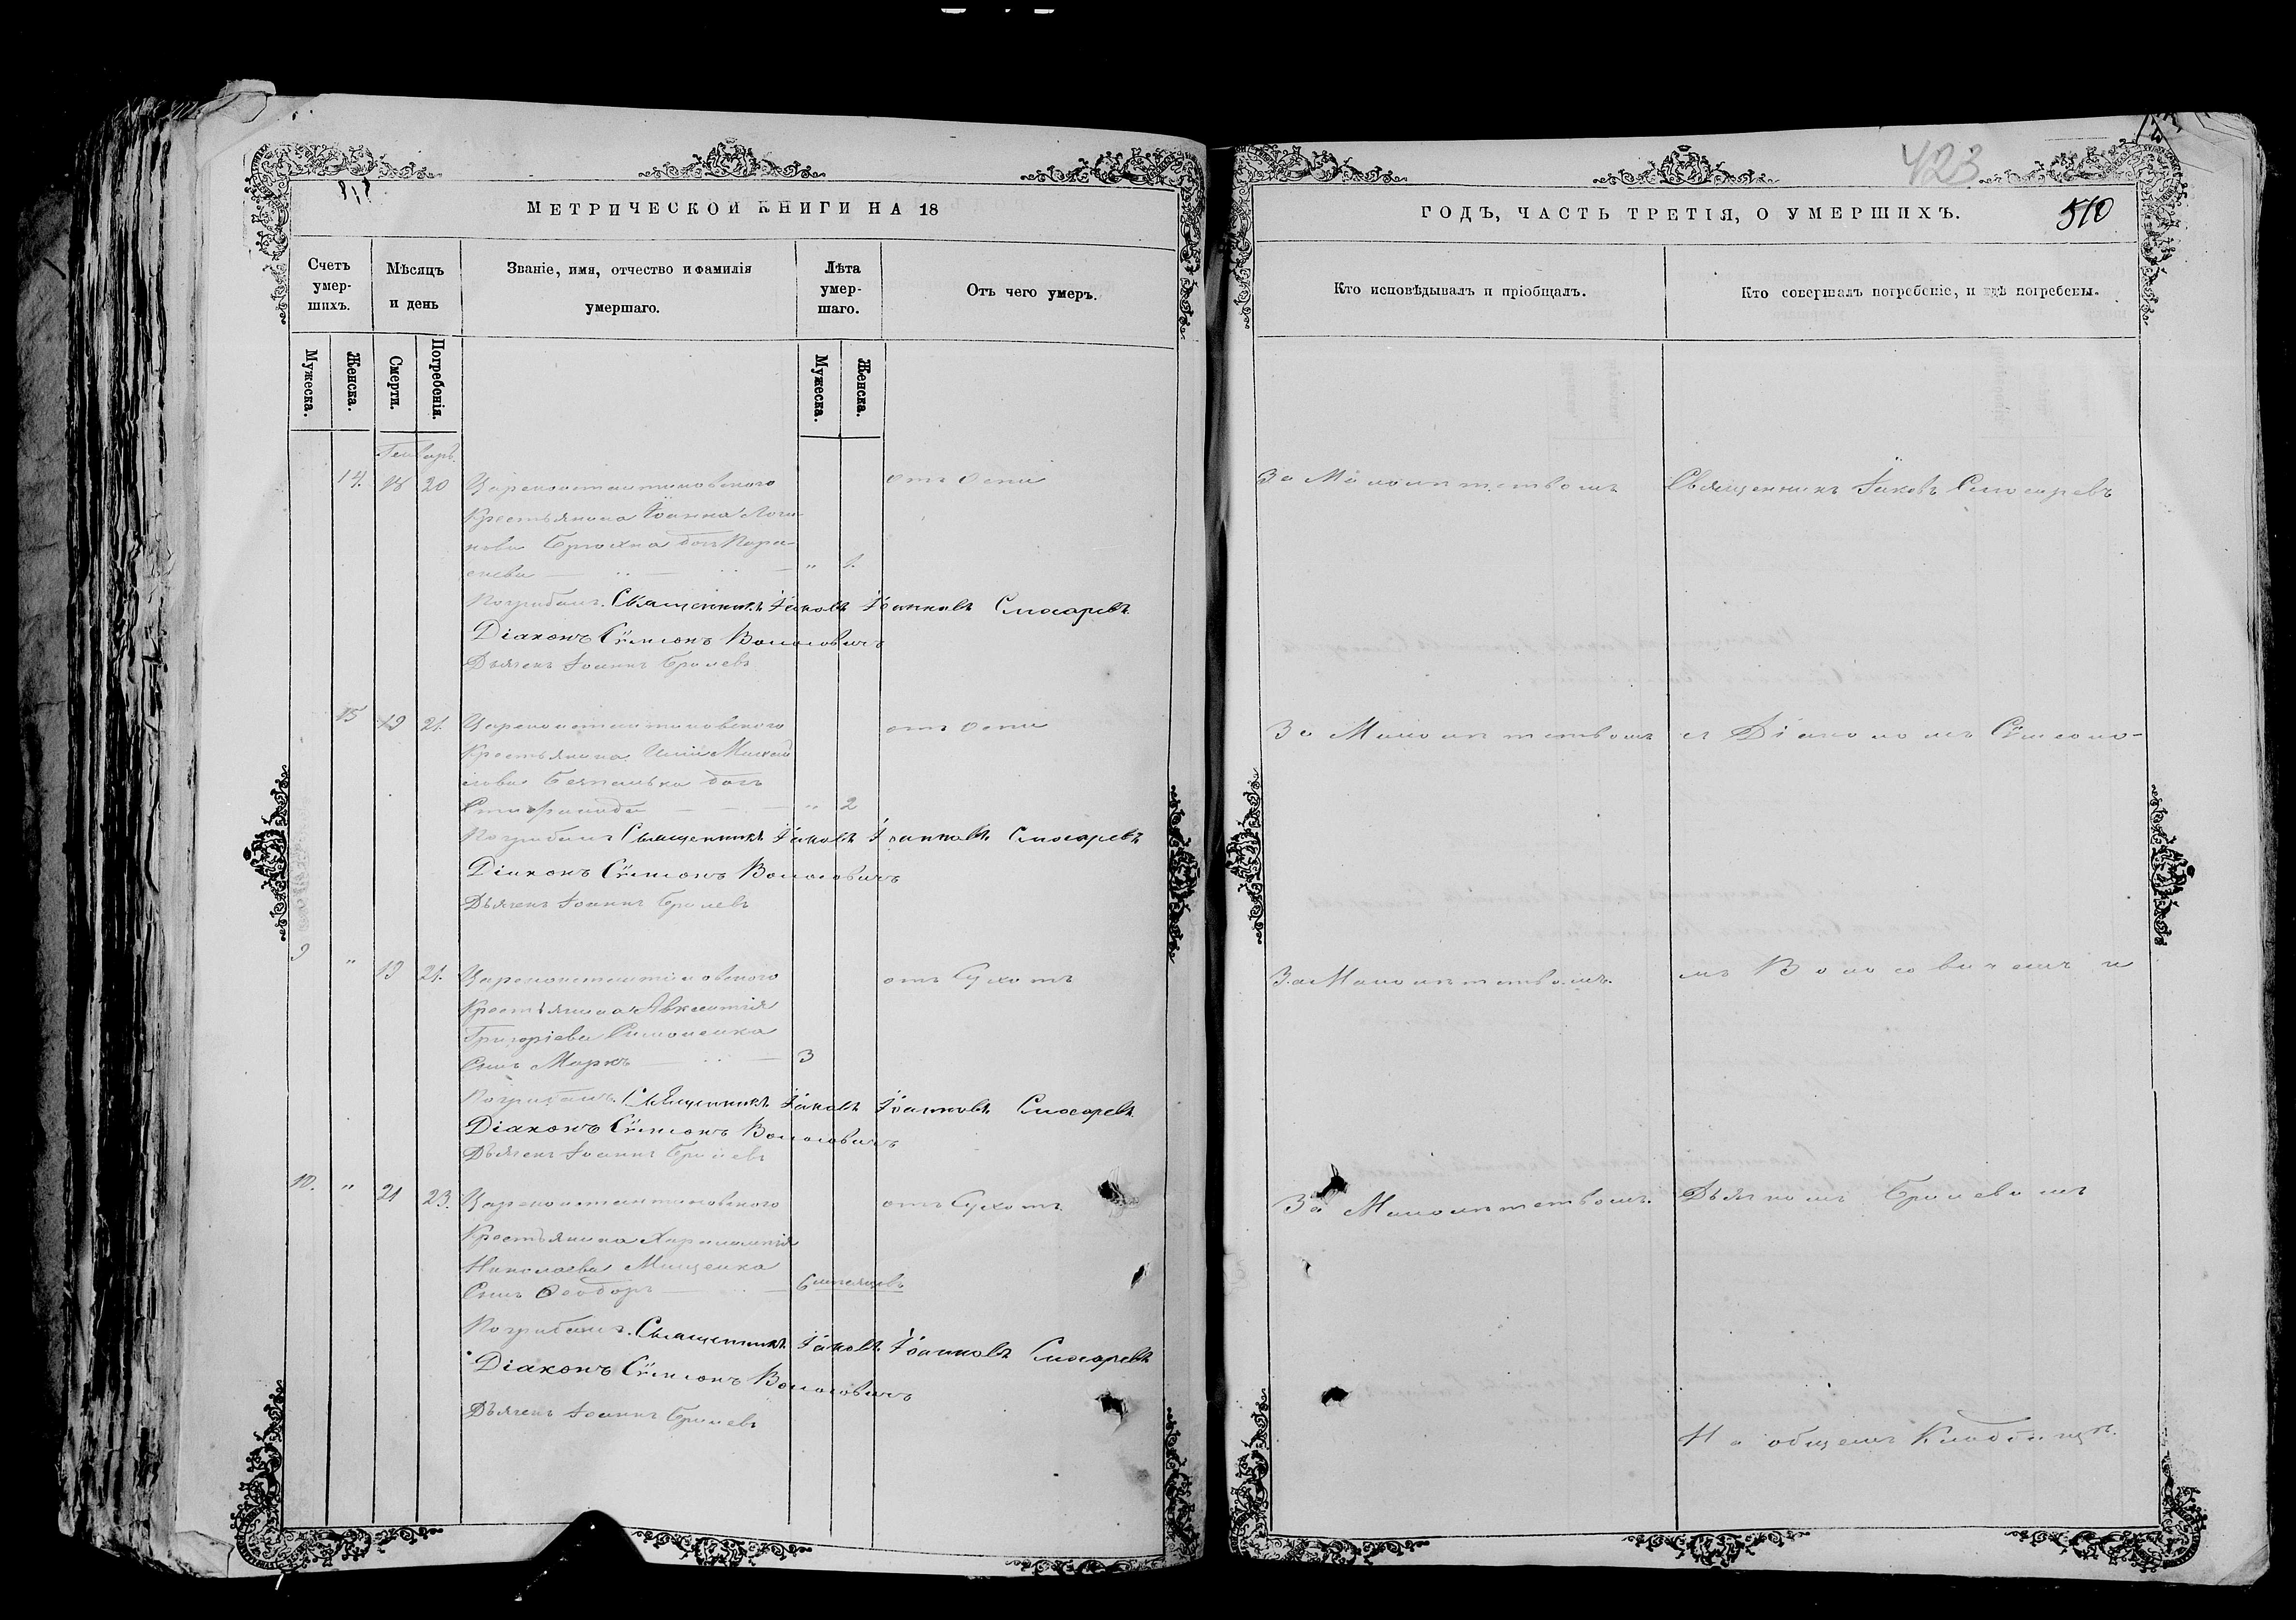 МЕТРИЧЕСКОЙ КНИГИ НА 18
Счетъ умер-шихъ.
Мѣсяцъ и день
Званіе, имя, отчество и фамилія умершаго.
Лѣта умер-шаго.
Отъ чего умеръ.
Мужеска.
Женска.
Смерти.
Погребенія.
Мужеска.
Женска.
Генварь.
14. 18 20 Цареконстантиновского отъ оспы
Крестьянина Іоанна Логи-
нова дочь Пара-
скева " 1.
Погребалъ Священникъ Іаковъ Іоанновъ Слюсаревъ
Діаконъ Сѵмеонъ Волосовичъ
Дьячекъ Іоаннъ
15 19 21. Цареконстантиновского отъ оспы
Крестьянина Иліи Михаи
лова дочь
" 2
Погребалъ Священникъ Іаковъ Іоанновъ Слюсаревъ
Діаконъ Сѵмеонъ Волосовичъ
Дьячекъ Іоаннъ
9 " 19 21. Цареконстантиновского отъ Сухотъ
Крестьянина Авксентія
Григоріева Симоненка
Сынъ Маркъ 3
Погребалъ Священникъ Іаковъ Іоанновъ Слюсаревъ
Діаконъ Сѵмеонъ Волосовичъ
Дьячекъ Іоаннъ
10. " 21 23. Цареконстантиновского отъ Сухотъ
Крестьянина Харалампія
Николаева Мищенка
Сынъ Ѳеодоръ 6 мѣсяцовъ
Погребалъ Священникъ Іаковъ Іоанновъ Слюсаревъ
Діаконъ Сѵмеонъ Волосовичъ
Дьячекъ Іоаннъ
423
ГОДЪ, ЧАСТЬ ТРЕТІЯ, О УМЕРШИХЪ.
510
Кто исповѣдывалъ и пріобщалъ.
Кто совершалъ погребеніе, и гдѣ погребены.
За Малолѣтствомъ Священникъ Іаковъ Слюсаревъ
За Малолѣтствомъ съ Діакономъ Сѵмеоно-
За Малолѣтствомъ. мъ Волосовичемъ и
За Малолѣтствомъ. Дьячкомъ
На общемъ Кладбищѣ.